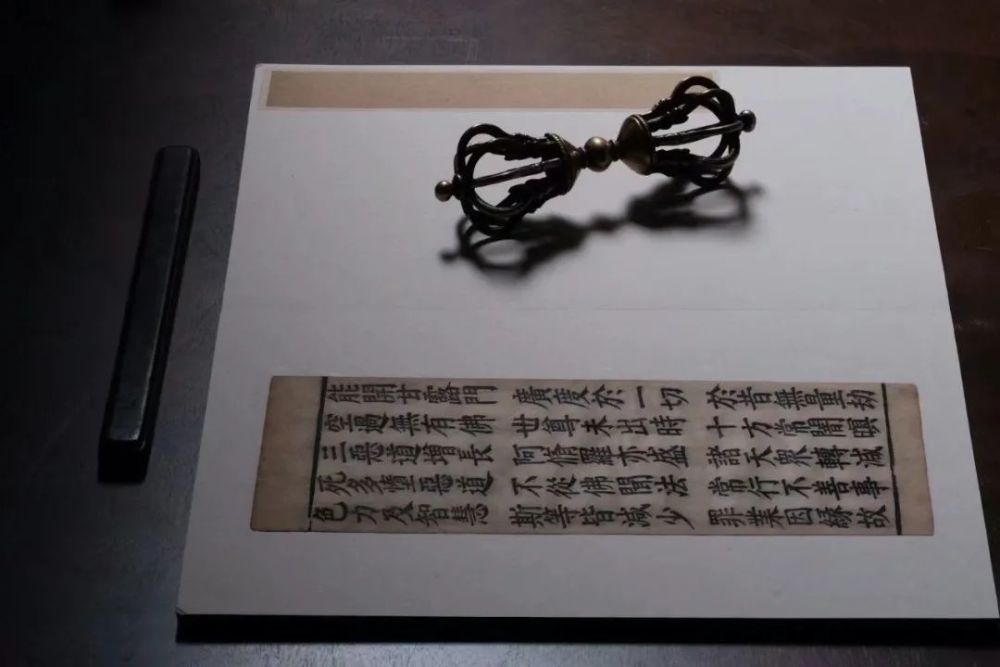 能開甘露門 廣度於一切 於昔無量劫
空過無有佛 世尊未出時 十方常闇瞑
三惡道增長 阿脩羅亦盛 諸天衆轉減
死多墮惡道 不從佛聞法 常行不善事
色力及智慧 斯等皆減少 罪業因緣故